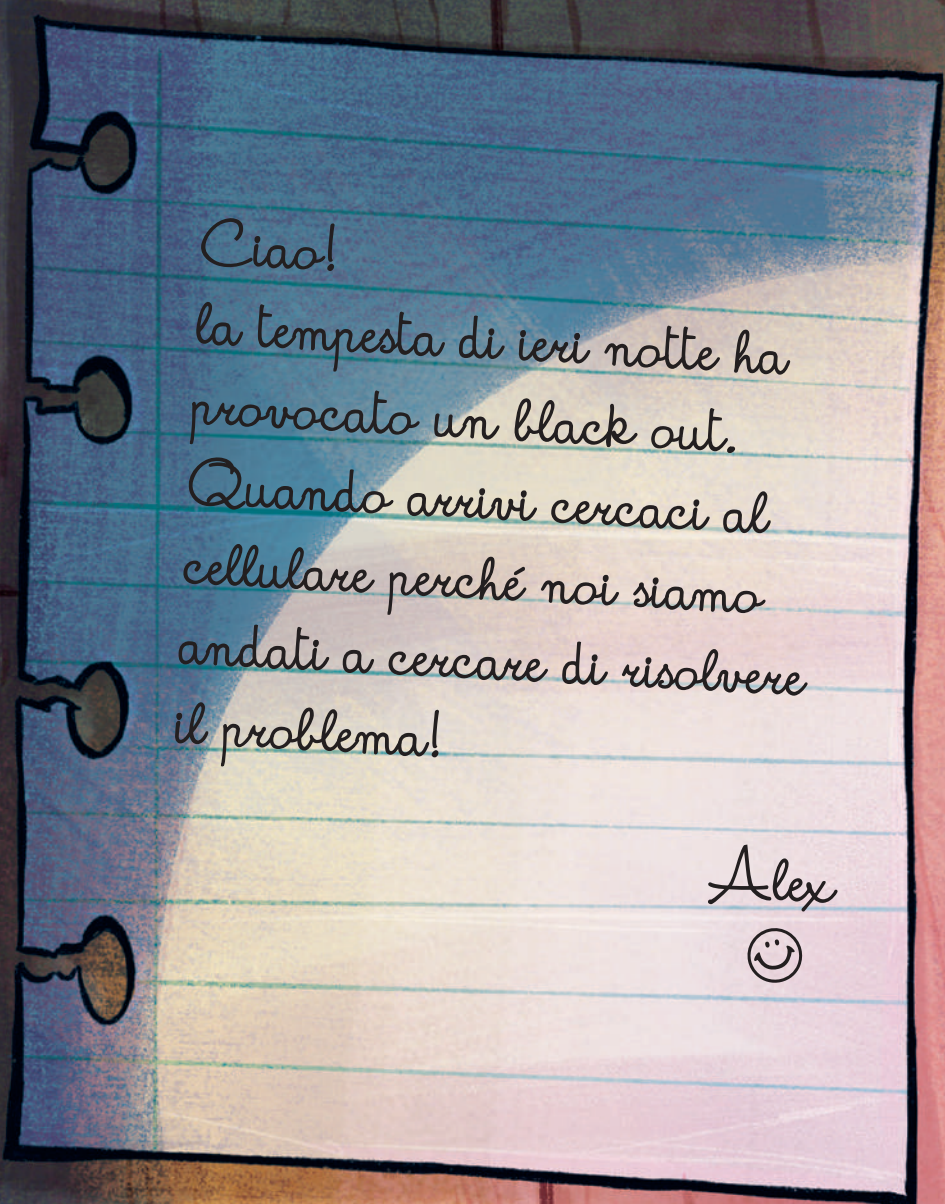 Ciao!
la tempesta di ieri notte ha
provocato un black out.
Quando arrivi cercaci al
cellulare perché noi siamo
andati a cercare di risolvere
il problema!
Alex